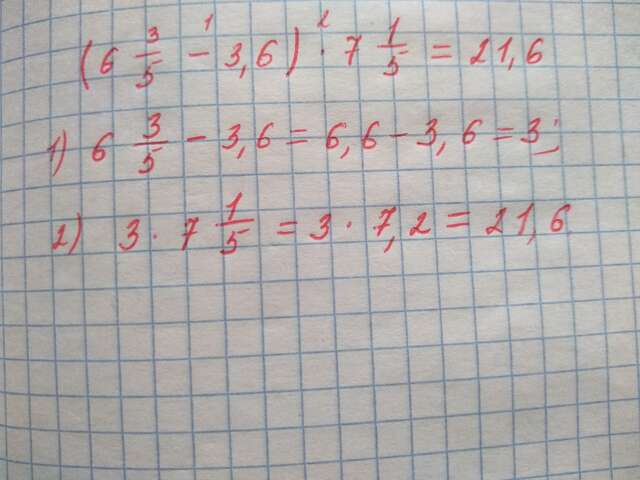 (6 3/5 - 3,6) · 7 1/5 = 21,6
1) 6 3/5 - 3,6 = 6,6 - 3,6 = 3;
2) 3 · 7 1/5 = 3 · 7,2 = 21,6